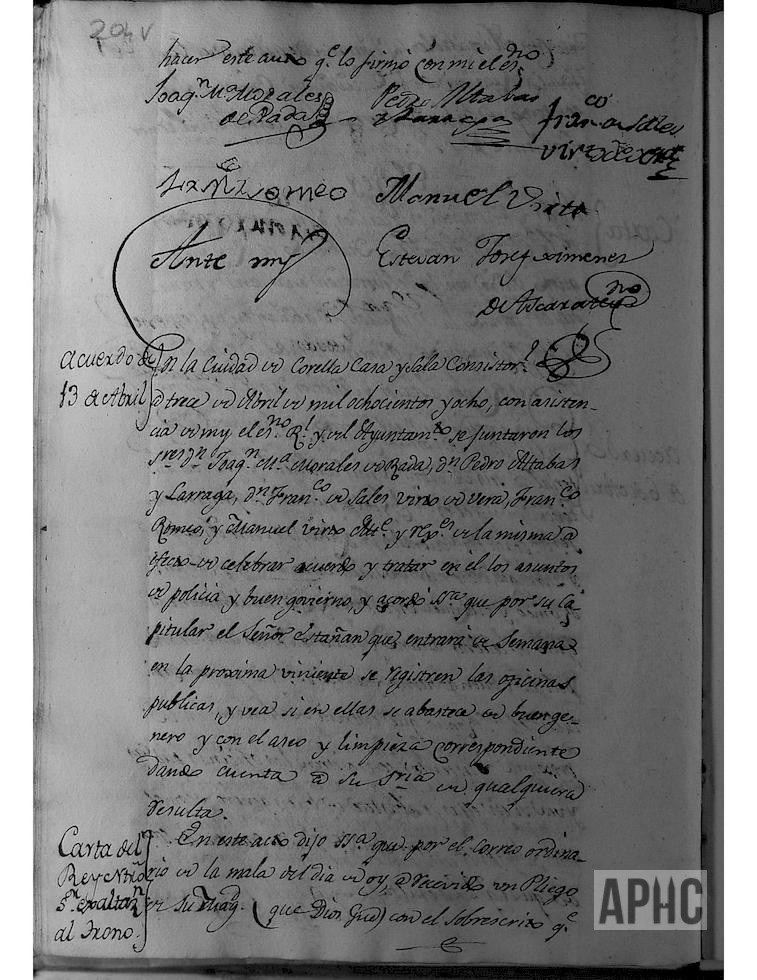 204 v
hacer este auto q.e lo firmó con mi el es.no
Joaq.n M.a Morales Pedro Altabas
de Rada y Larraga Fran.co de Sales
Virto de Vera
Fran.co Romeo Manuel Virto
Ante my Estevan Josef Ximenez
de Ascarate es.no
acuerdo de
13 de Abril
En la Ciudad de Corella Casa y Sala Consistor.l
a trece de Abril de mil ochocientos y ocho, con asisten-
cia de my el es.no R.l y del Ayuntam.to se juntaron los
s.res d.n Joaq.n M.a Morales de Rada, d.n Pedro Altabas
y Larraga, d.n Fran.co de Sales Virto de Vera, Fran.co
Romeo, y Manuel Virto Alc.e y reg.es de la misma a
efecto de celebrar acuerdo y tratar en el los asuntos
de policia y buen govierno, y acordó SS.ria que por su Ca-
pitular el Señor Estañan que entrará de Semana
en la proxima viniente se registren las oficinas
publicas, y vea si en ellas se abastece de buen ge-
nero y con el aseo y limpieza correspondiente
dando cuenta a su S.ria de qualquiera
resulta.
Carta del
Rey Ntro
S.r exaltaz.n
al Trono.
En este acto dijo SS.a que por el Correo ordina-
rio de la mala del dia de oy, a recivido un Pliego
de su Mag.d (que Dios Gue) con el sobrescrito q.e
APHC